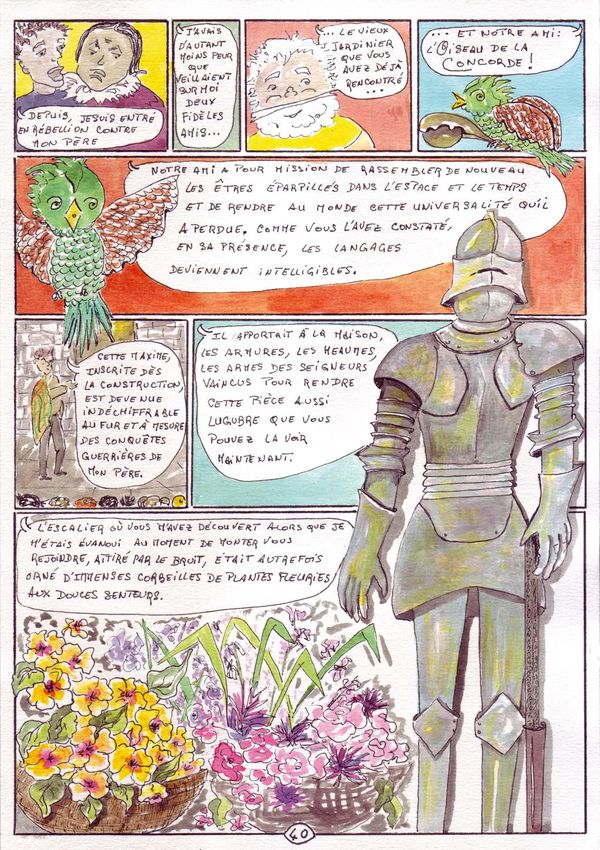 DEPUIS, JE SUIS ENTRÉ
EN RÉBELLION CONTRE
MON PÈRE
J'AVAIS
D'AUTANT
MOINS PEUR
QUE
VEILLAIENT
SUR MOI
DEUX
FIDÈLES
AMIS...
... LE VIEUX
JARDINIER
QUE VOUS
AVEZ DÉJÀ
RENCONTRÉ
...
... ET NOTRE AMI:
L'OISEAU DE LA
CONCORDE!
NOTRE AMI A POUR MISSION DE RASSEMBLER DE NOUVEAU
LES ÊTRES ÉPARPILLÉS DANS L'ESPACE ET LE TEMPS
ET DE RENDRE AU MONDE CETTE UNIVERSALITÉ QU'IL
A PERDUE. COMME VOUS L'AVEZ CONSTATÉ,
EN SA PRÉSENCE, LES LANGAGES
DEVIENNENT INTELLIGIBLES.
CETTE MAXIME,
INSCRITE DÈS
LA CONSTRUCTION,
EST DEVENUE
INDÉCHIFFRABLE
AU FUR ET À MESURE
DES CONQUÊTES
GUERRIÈRES DE
MON PÈRE.
IL APPORTAIT À LA MAISON,
LES ARMURES, LES HEAUMES,
LES ARMES DES SEIGNEURS
VAINCUS POUR RENDRE
CETTE PIÈCE AUSSI
LUGUBRE QUE VOUS
POUVEZ LA VOIR
MAINTENANT.
L'ESCALIER OÙ VOUS M'AVEZ DÉCOUVERT ALORS QUE JE
M'ÉTAIS ÉVANOUI AU MOMENT DE MONTER VOUS
REJOINDRE, ATTIRÉ PAR LE BRUIT, ÉTAIT AUTREFOIS
ORNÉ D'IMMENSES CORBEILLES DE PLANTES FLEURIES
AUX DOUCES SENTEURS.
40